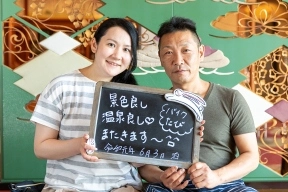 景色良し
温泉良し♡
またきます〜
バイク
たび
令和元年 6月3日